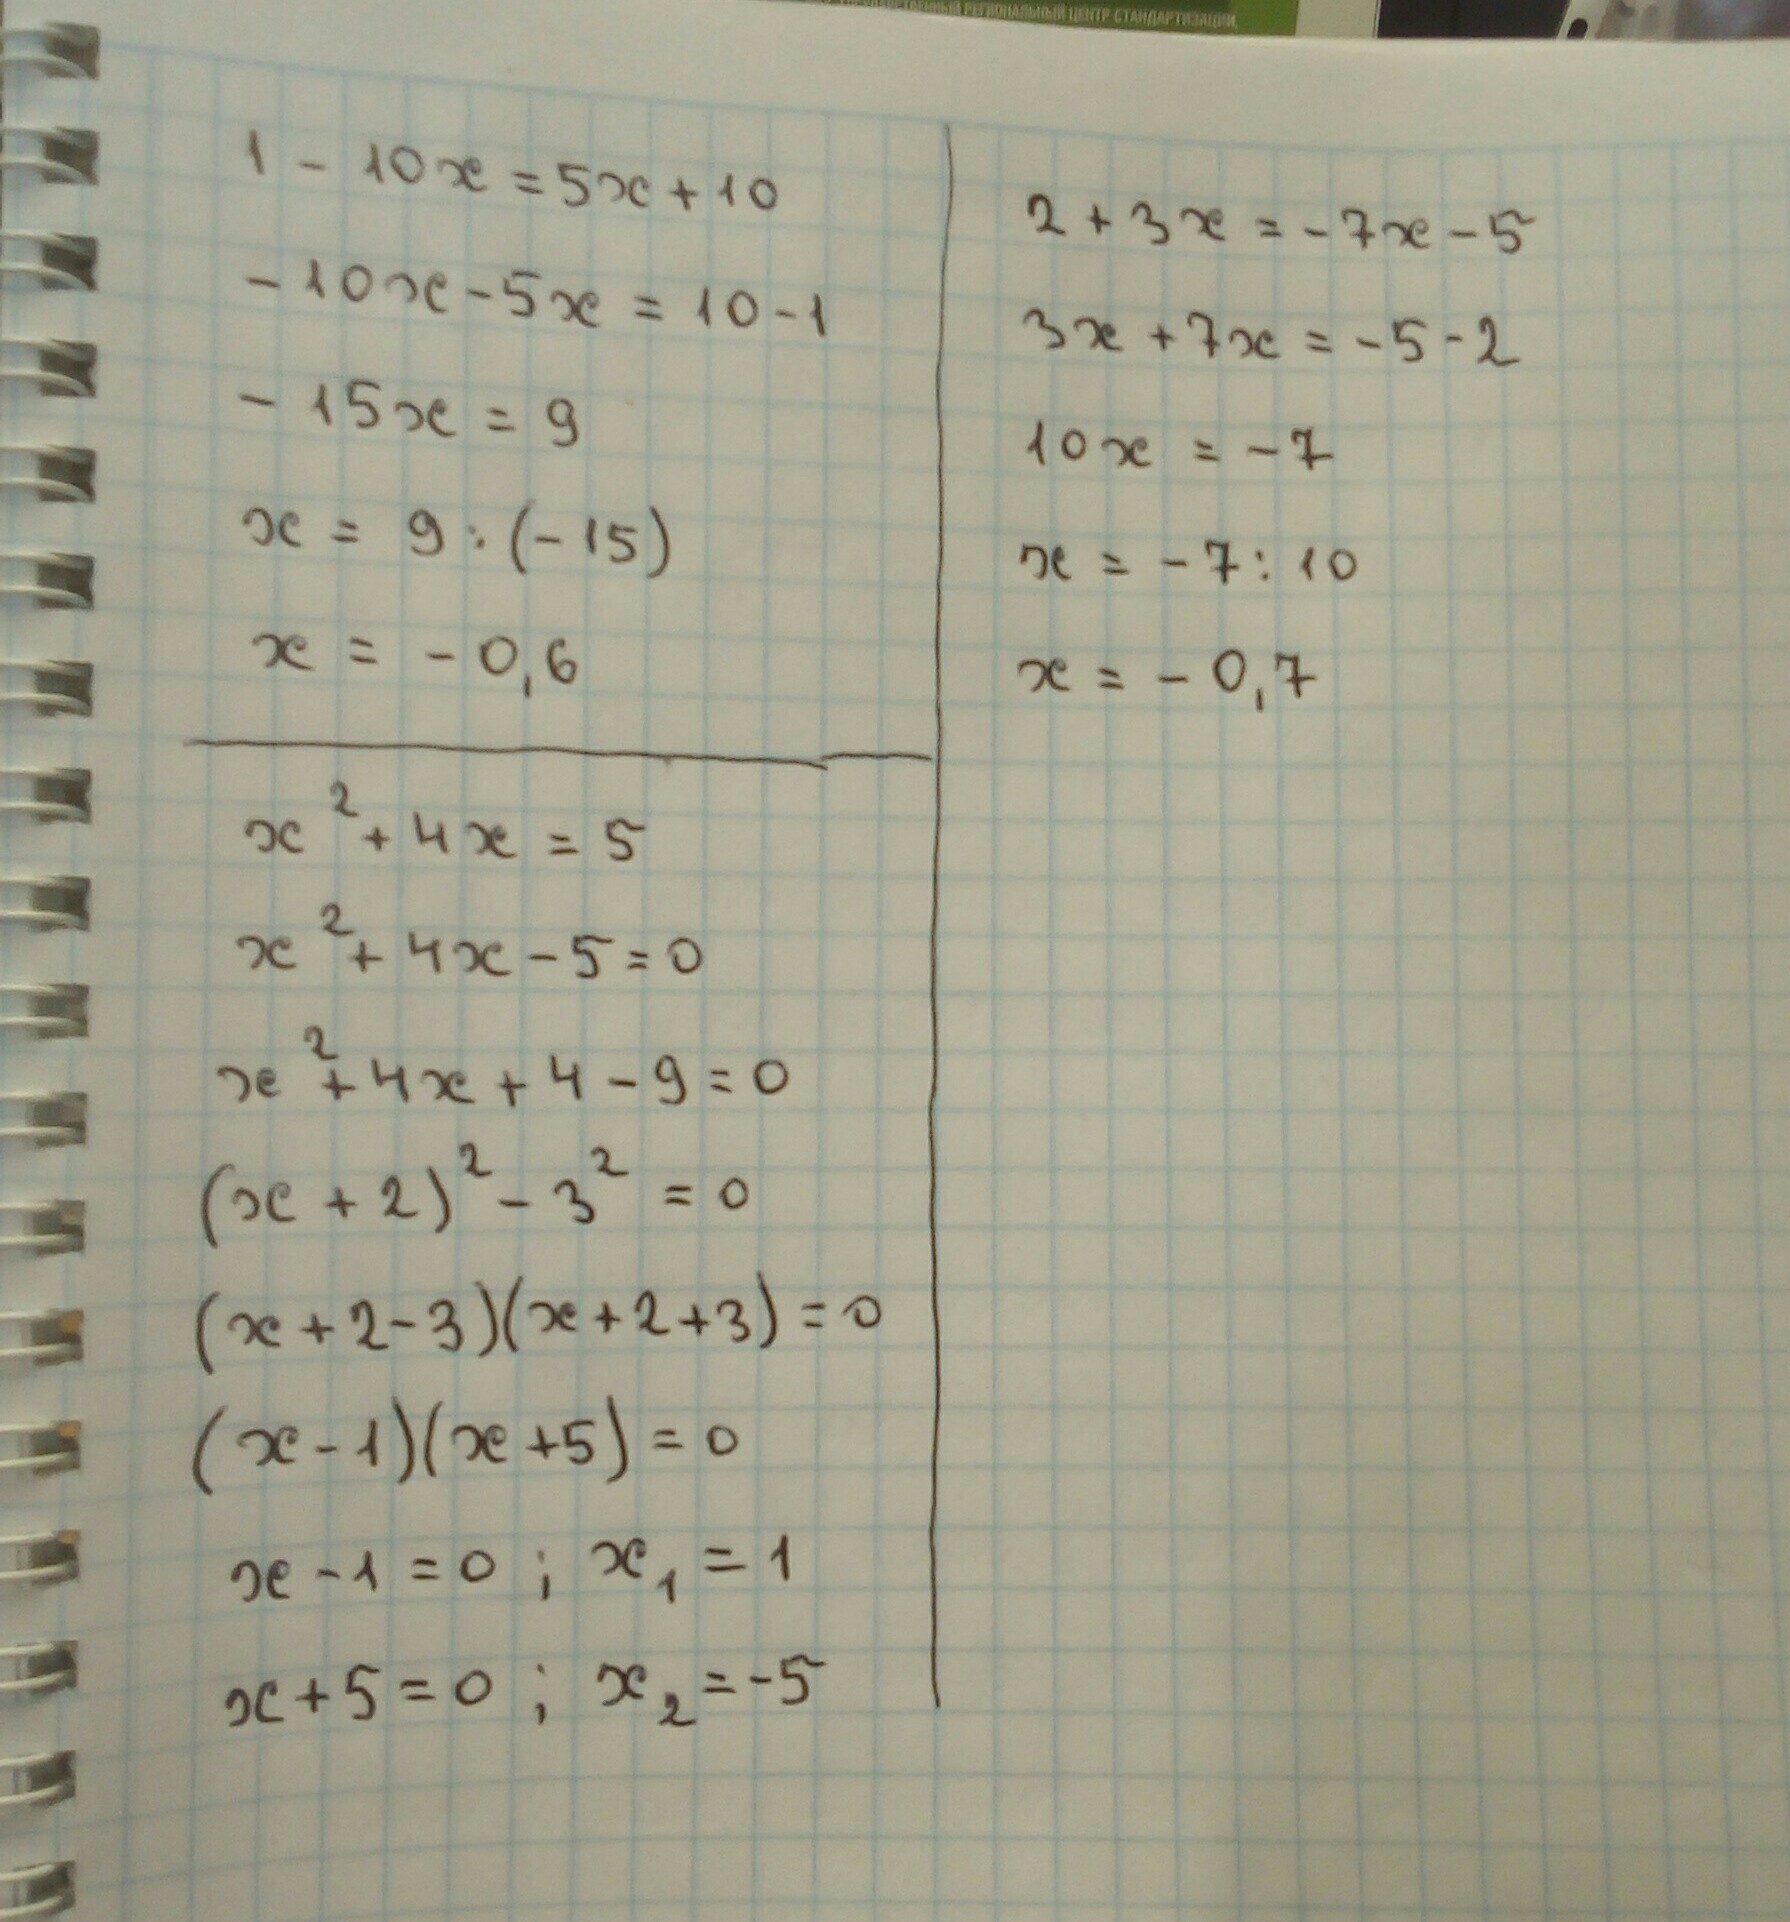 РЕГИОНАЛЬНЫЙ ЦЕНТР СТАНДАРТИЗАЦИИ,
1 - 10x = 5x + 10
-10x - 5x = 10 - 1
- 15x = 9
x = 9 : (-15)
x = -0,6
x² + 4x = 5
x² + 4x - 5 = 0
x² + 4x + 4 - 9 = 0
(x + 2)² - 3² = 0
(x + 2 - 3)(x + 2 + 3) = 0
(x - 1)(x + 5) = 0
x - 1 = 0 ; x₁ = 1
x + 5 = 0 ; x₂ = -5
2 + 3x = -7x - 5
3x + 7x = -5 - 2
10x = -7
x = -7 : 10
x = -0,7